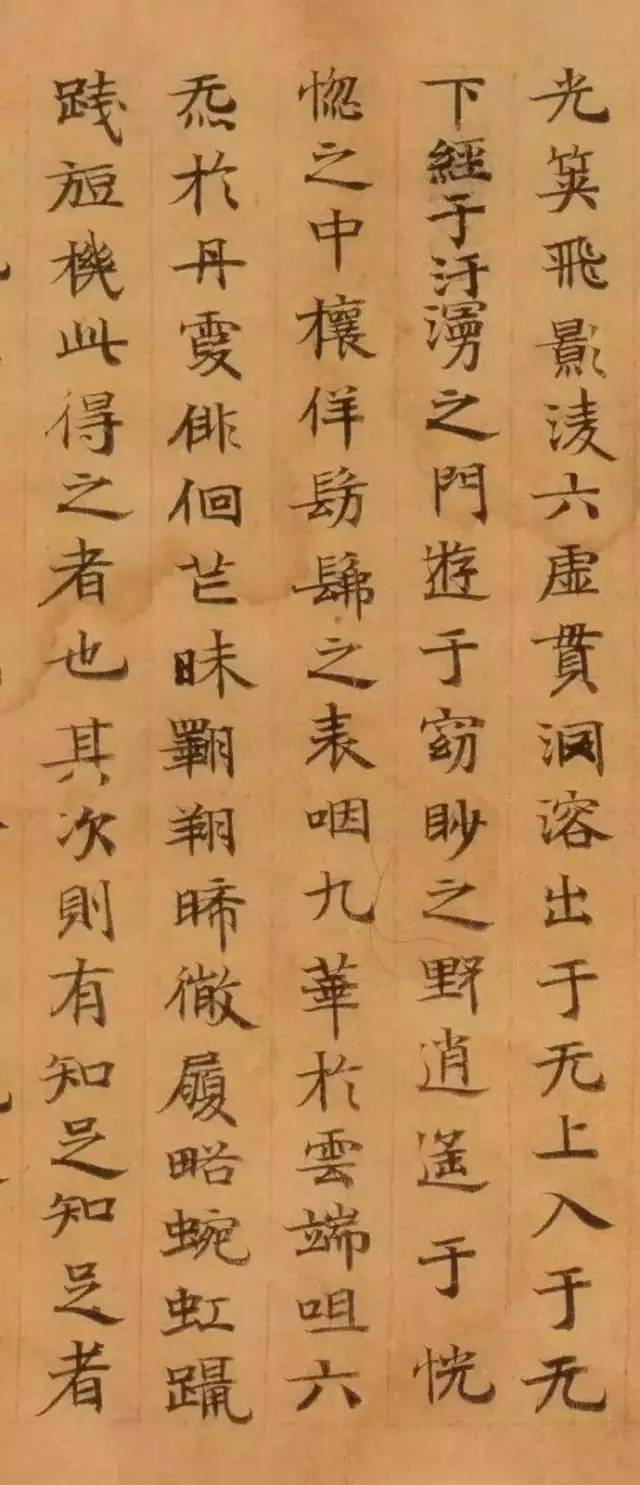 光筴飛影淩六虛貫洞溶出于无上入于无
下經于汙漫之門遊于窈眇之野逍遙于恍
惚之中欀佯髣髴之表咽九華於雲端咀六
炁於丹霞俳徊芒昧翱翔晞微履略蜿虹躡
踐旋機此得之者也其次則有知足知足者